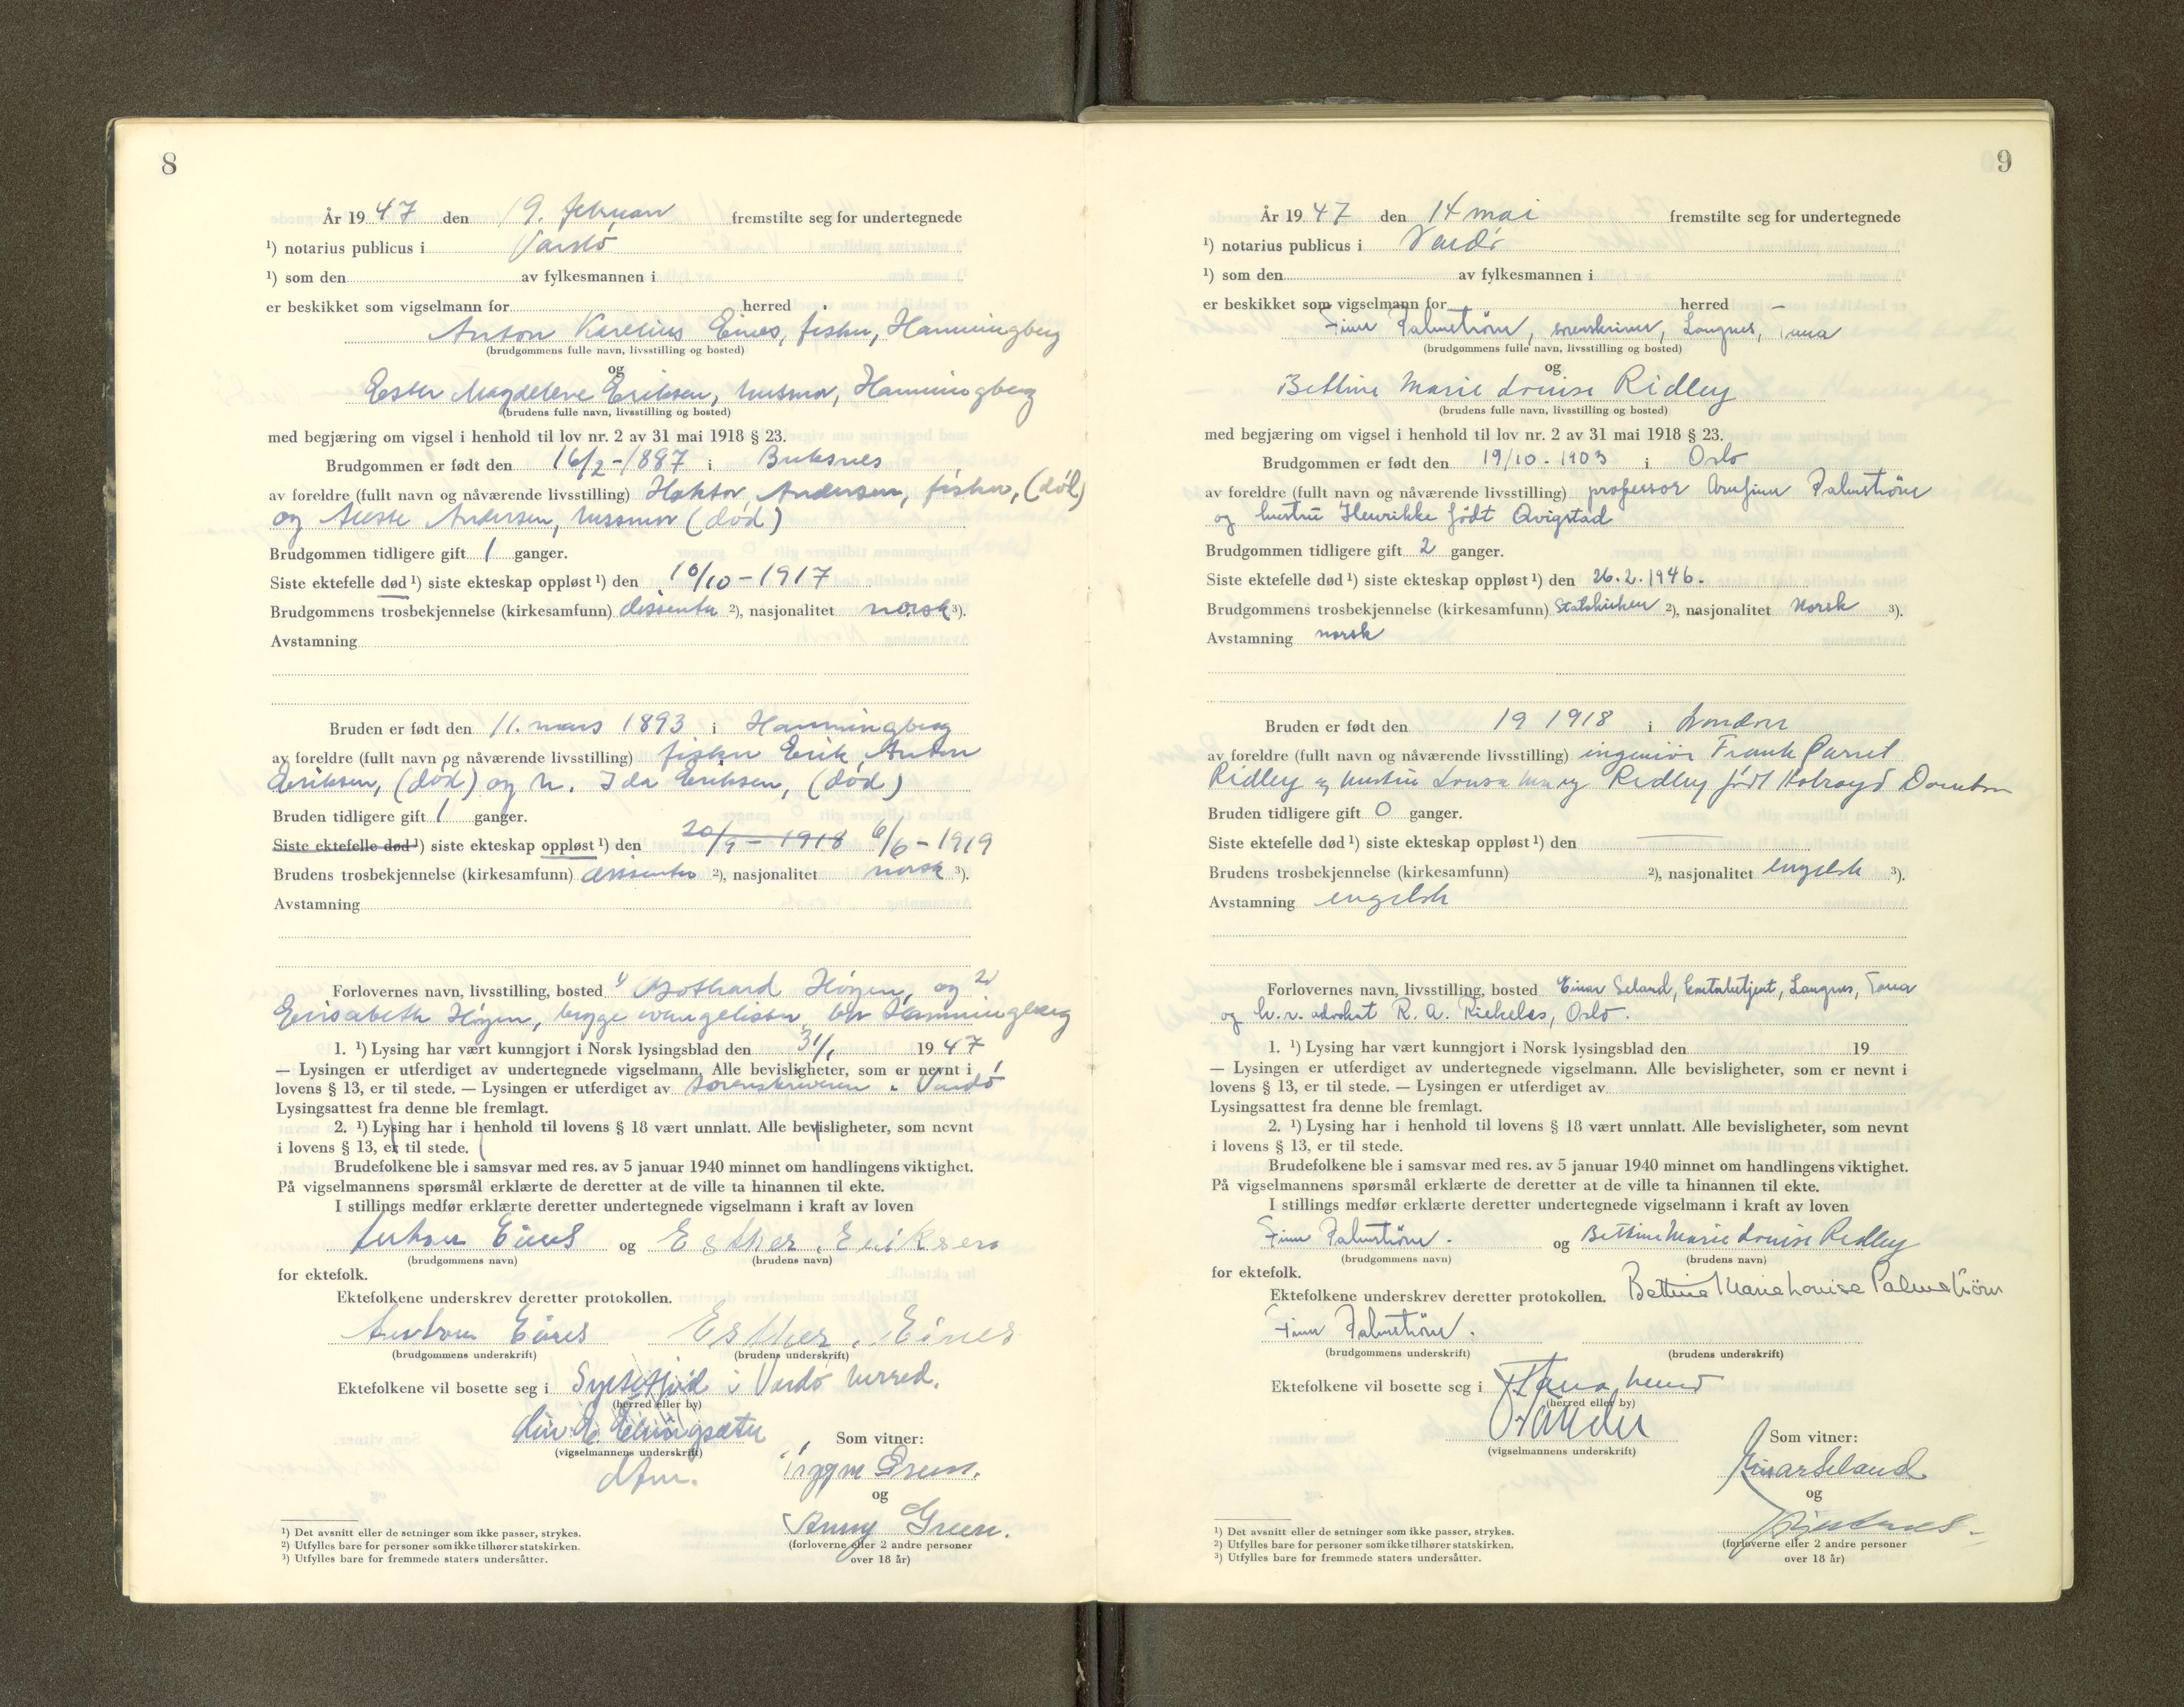 8
År 19 47 den 19. februar fremstilte seg for undertegnede
¹) notarius publicus i Vardø
¹) som den av fylkesmannen i
er beskikket som vigselmann for herred
Anton Karelius Eines, fisker, Hamningberg
(brudgommens fulle navn, livsstilling og bosted)
og
Ester Magdelene Eriksen, husmor, Hamningberg
(brudens fulle navn, livsstilling og bosted)
med begjæring om vigsel i henhold til lov nr. 2 av 31 mai 1918 § 23.
Brudgommen er født den 16/2-1887 i Buksnes
av foreldre (fullt navn og nåværende livsstilling) Andersen, fisker, (død)
og Andersen, husmor (død)
Brudgommen tidligere gift 1 ganger.
Siste ektefelle død ¹) siste ekteskap oppløst ¹) den 10/10-1917
Brudgommens trosbekjennelse (kirkesamfunn) dissenter ²), nasjonalitet norsk ³).
Avstamning
Bruden er født den 11. mars 1893 i Hamningberg
av foreldre (fullt navn og nåværende livsstilling) fisker Erik Anton
Eriksen, (død) og h. Ida Eriksen, (død)
Bruden tidligere gift 1 ganger.
Siste ektefelle død ¹) siste ekteskap oppløst ¹) den 20/9-1918 6/6-1919
Brudens trosbekjennelse (kirkesamfunn) dissenter ²), nasjonalitet norsk ³).
Avstamning
Forlovernes navn, livsstilling, bosted 1) Gothard Høgen, og 2)
Elisabeth Høgen, begge evangelister, Hamningberg
1. ¹) Lysing har vært kunngjort i Norsk lysingsblad den 31/1 19 47
— Lysingen er utferdiget av undertegnede vigselmann. Alle bevisligheter, som er nevnt i
lovens § 13, er til stede. — Lysingen er utferdiget av sorenskriveren i Vardø
Lysingsattest fra denne ble fremlagt.
2. ¹) Lysing har i henhold til lovens § 18 vært unnlatt. Alle bevisligheter, som nevnt
i lovens § 13, er til stede.
Brudefolkene ble i samsvar med res. av 5 januar 1940 minnet om handlingens viktighet.
På vigselmannens spørsmål erklærte de deretter at de ville ta hinannen til ekte.
I stillings medfør erklærte deretter undertegnede vigselmann i kraft av loven
Anton Eines og Esther Eriksen
(brudgommens navn) (brudens navn)
for ektefolk.
Ektefolkene underskrev deretter protokollen.
Anton Eines Esther Eines
(brudgommens underskrift) (brudens underskrift)
Ektefolkene vil bosette seg i Syltefjord i Vardø herred.
(herred eller by)
(vigselmannens underskrift)
Som vitner:
Trygve Green.
og
Anny Green.
(forloverne eller 2 andre personer
over 18 år)
¹) Det avsnitt eller de setninger som ikke passer, strykes.
²) Utfylles bare for personer som ikke tilhører statskirken.
³) Utfylles bare for fremmede staters undersåtter.
9
År 19 47 den 14 mai fremstilte seg for undertegnede
¹) notarius publicus i Vardø
¹) som den av fylkesmannen i
er beskikket som vigselmann for herred
Finn Palmstrøm, sorenskriver, Langnes, Tana
(brudgommens fulle navn, livsstilling og bosted)
og
Bettine Marie Louise Ridley
(brudens fulle navn, livsstilling og bosted)
med begjæring om vigsel i henhold til lov nr. 2 av 31 mai 1918 § 23.
Brudgommen er født den 19/10-1903 i Oslo
av foreldre (fullt navn og nåværende livsstilling) professor Arnfinn Palmstrøm
og hustru Henrikke født Qvigstad
Brudgommen tidligere gift 2 ganger.
Siste ektefelle død ¹) siste ekteskap oppløst ¹) den 26.2.1946.
Brudgommens trosbekjennelse (kirkesamfunn) Statskirken ²), nasjonalitet Norsk ³).
Avstamning norsk
Bruden er født den 19 1918 i London
av foreldre (fullt navn og nåværende livsstilling) ingeniør Frank
Ridley og hustru Louisa Mary Ridley født Holroyd
Bruden tidligere gift 0 ganger.
Siste ektefelle død ¹) siste ekteskap oppløst ¹) den —
Brudens trosbekjennelse (kirkesamfunn) ²), nasjonalitet engelsk ³).
Avstamning engelsk
Forlovernes navn, livsstilling, bosted Einar Seland, Langnes, Tana
og h.r. advokat R. A. Riekeles, Oslo.
1. ¹) Lysing har vært kunngjort i Norsk lysingsblad den 19
— Lysingen er utferdiget av undertegnede vigselmann. Alle bevisligheter, som er nevnt i
lovens § 13, er til stede. — Lysingen er utferdiget av
Lysingsattest fra denne ble fremlagt.
2. ¹) Lysing har i henhold til lovens § 18 vært unnlatt. Alle bevisligheter, som nevnt
i lovens § 13, er til stede.
Brudefolkene ble i samsvar med res. av 5 januar 1940 minnet om handlingens viktighet.
På vigselmannens spørsmål erklærte de deretter at de ville ta hinannen til ekte.
I stillings medfør erklærte deretter undertegnede vigselmann i kraft av loven
Finn Palmstrøm. og Bettine Marie Louise Ridley
(brudgommens navn) (brudens navn)
for ektefolk.
Ektefolkene underskrev deretter protokollen. Bettine Marie Louise Palmström
Finn Palmstrøm.
(brudgommens underskrift) (brudens underskrift)
Ektefolkene vil bosette seg i Tana herred
(herred eller by)
(vigselmannens underskrift)
Som vitner:
Einar Seland
og
(forloverne eller 2 andre personer
over 18 år)
¹) Det avsnitt eller de setninger som ikke passer, strykes.
²) Utfylles bare for personer som ikke tilhører statskirken.
³) Utfylles bare for fremmede staters undersåtter.